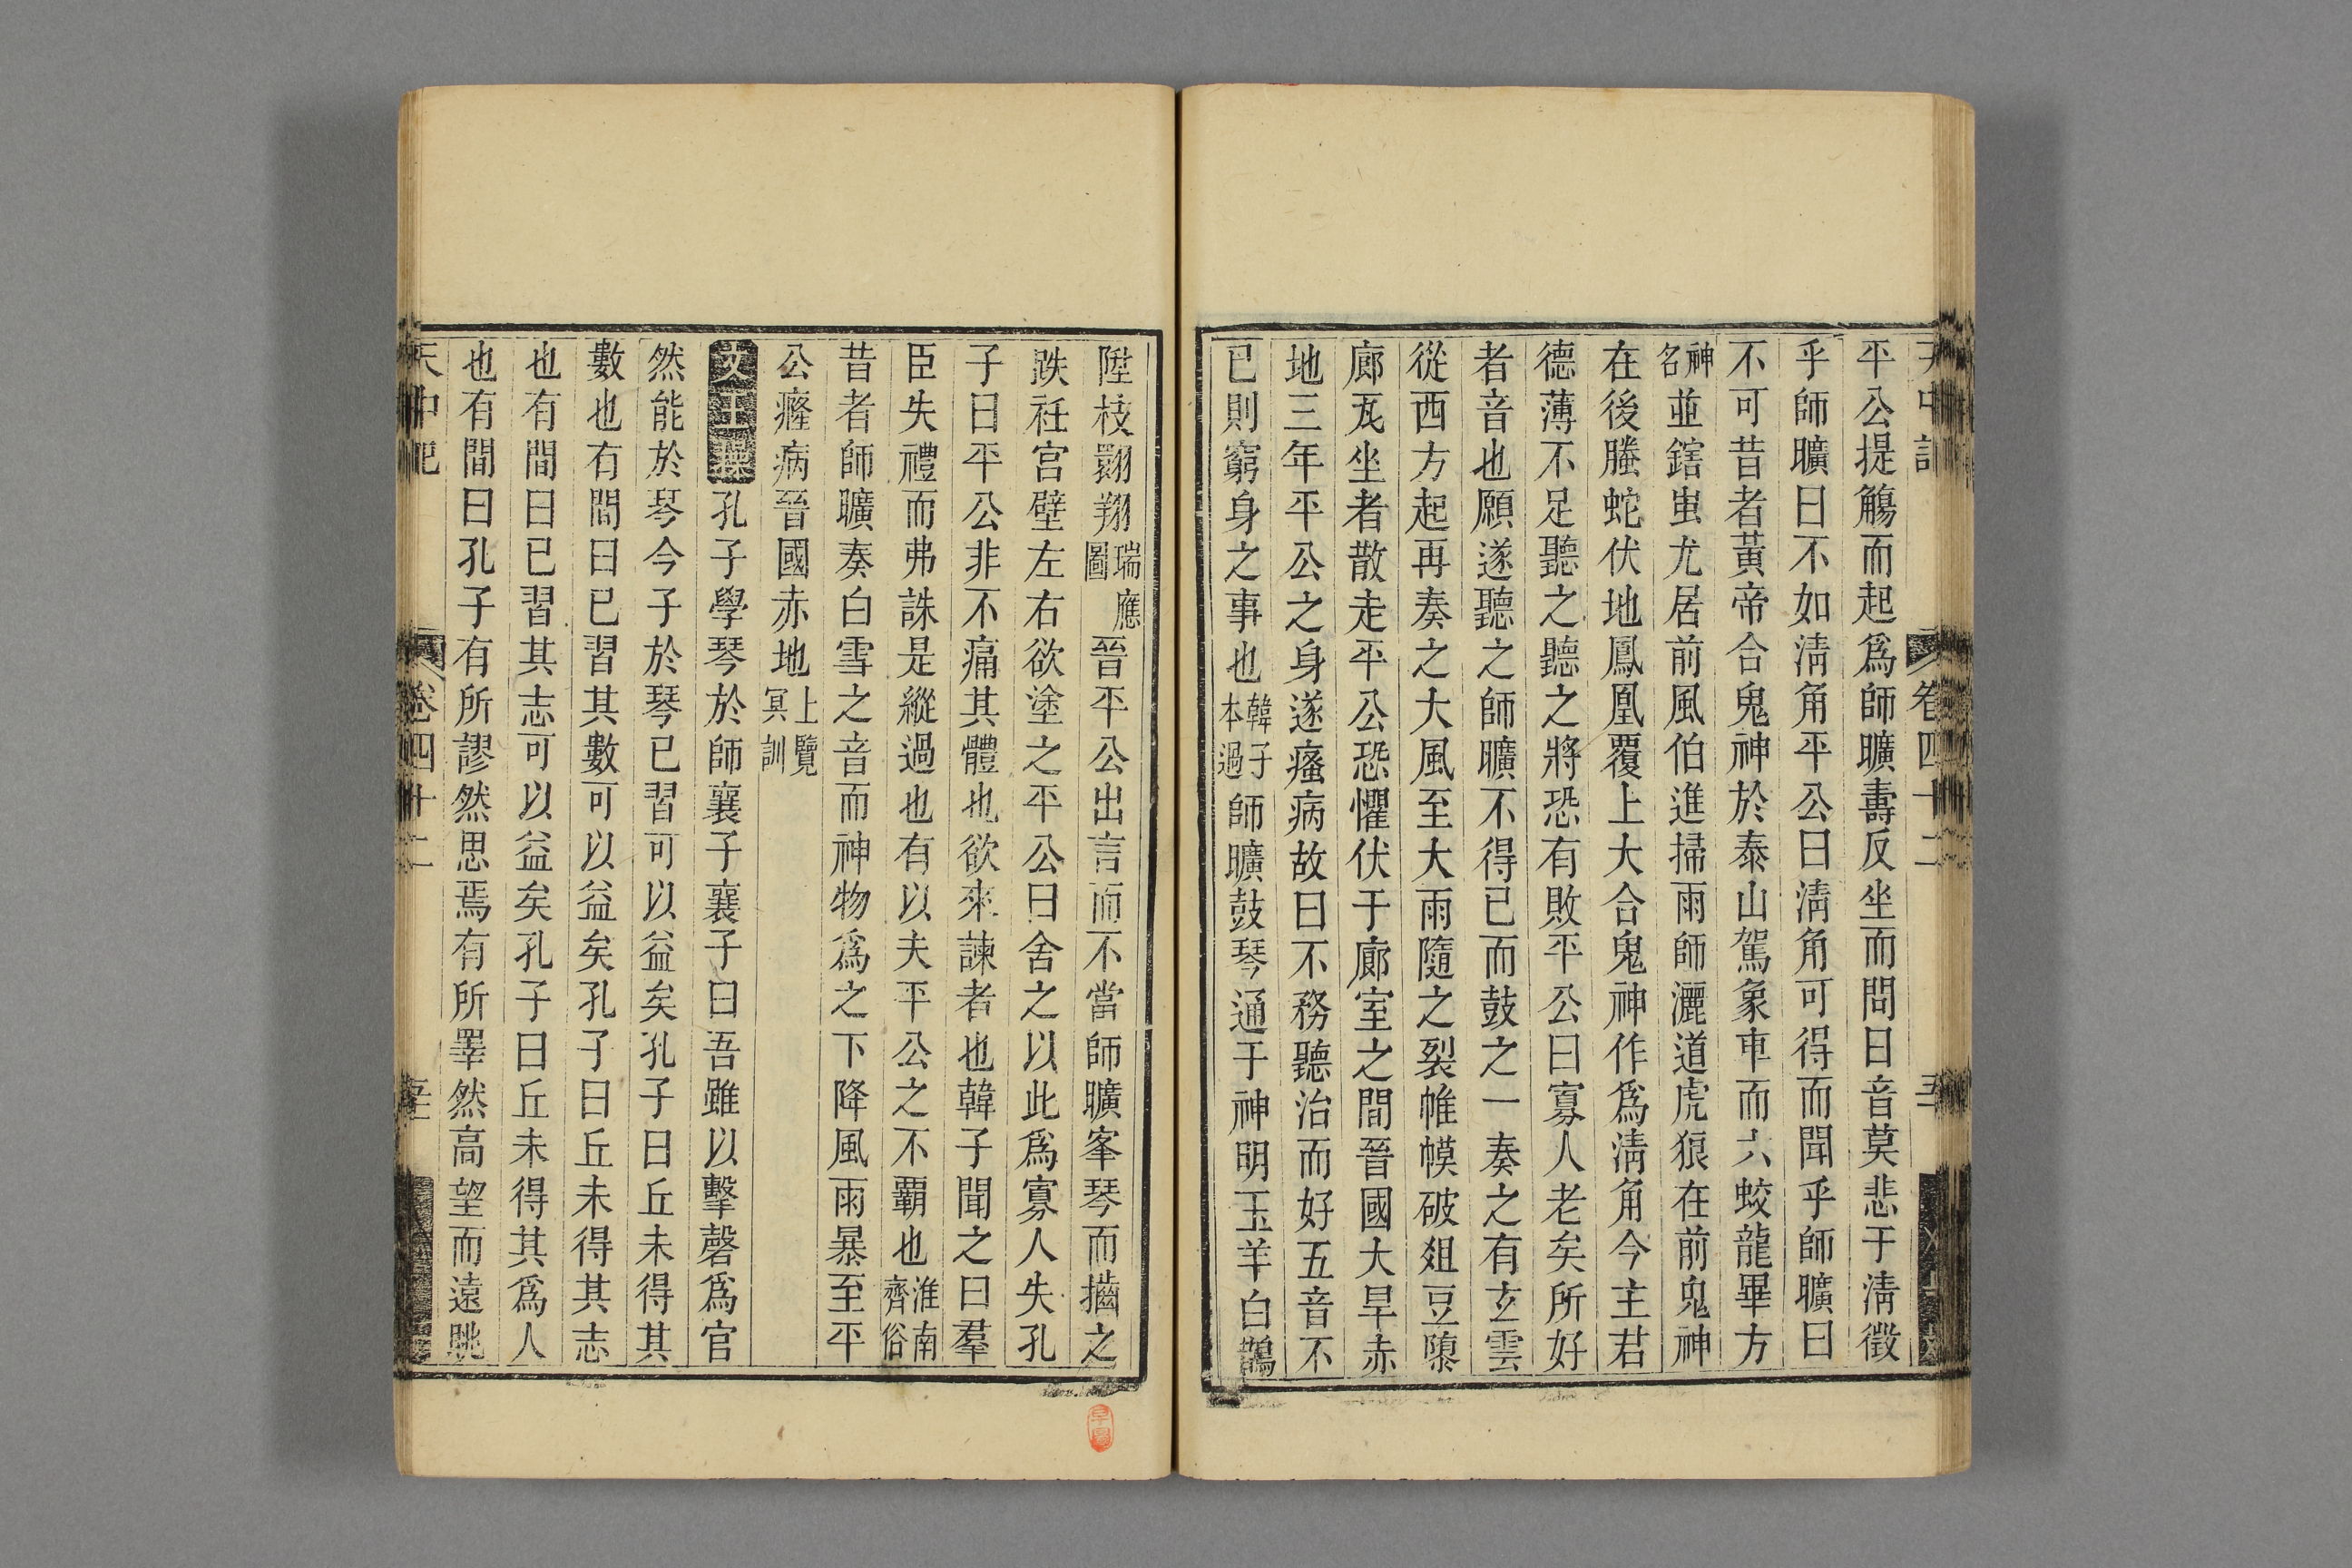 平公提觴而起爲師曠壽反坐而問曰音莫悲于淸徵
乎師曠曰不如淸角平公曰淸角可得而聞乎師曠曰
不可昔者黃帝合鬼神於泰山駕象車而六蛟龍畢方
神名並鎋蚩尤居前風伯進掃雨師灑道虎狼在前鬼神
在後螣蛇伏地鳳凰覆上大合鬼神作爲淸角今主君
德薄不足聽之聽之將恐有敗平公曰寡人老矣所好
者音也願遂聽之師曠不得已而鼓之一奏之有玄雲
從西方起再奏之大風至大雨隨之裂帷幙破俎豆隳
廊瓦坐者散走平公恐懼伏于廊室之間晉國大旱赤
地三年平公之身遂瘙病故曰不務聽治而好五音不
已則窮身之事也韓子本過師曠鼓琴通于神明玉羊白鵲
陞枝翾翔瑞應圖晉平公出言而不當師曠峯琴而擶之
跌衽宮壁左右欲塗之平公曰舍之以此爲寡人失孔
子曰平公非不痛其體也欲來諫者也韓子聞之曰羣
臣失禮而弗誅是縱過也有以夫平公之不覇也淮南齊俗
昔者師曠奏白雪之音而神物爲之下降風雨暴至平
公癃病晉國赤地上覽冥訓
文王操孔子學琴於師襄子襄子曰吾雖以擊磬爲官
然能於琴今子於琴已習可以益矣孔子曰丘未得其
數也有間曰已習其數可以益矣孔子曰丘未得其志
也有間曰已習其志可以益矣孔子曰丘未得其爲人
也有間曰孔子有所謬然思焉有所睪然高望而遠眺
卷四十二